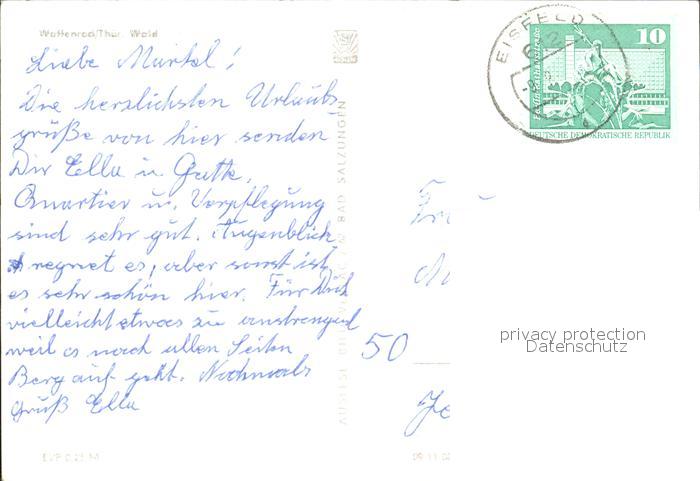 Waffenrod/Thür. Wald
Liebe Murkel!
Die herzlichsten Urlaubs
grüße von hier senden
Dir Ella u. Gatte.
Quartier u. Verpflegung
sind sehr gut. Augenblick
regnet es, aber sonst ist
es sehr schön hier. Für Dich
vielleicht etwas zu anstrengend
weil es nach allen Seiten
Berg auf geht. Nochmals
Gruß Ella
BAD SALZUNGEN
EISFELD
10
DEUTSCHE DEMOKRATISCHE REPUBLIK
50
privacy protection
Datenschutz